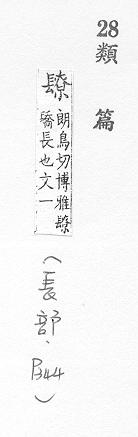 28
類篇
镽
朗鳥切博雅镽
長也文一
(長部, P344)